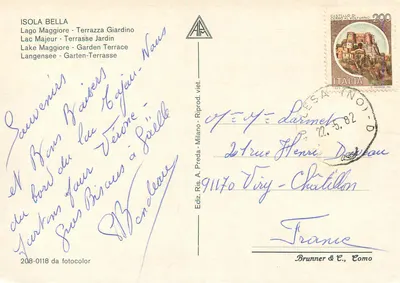 ISOLA BELLA
Lago Maggiore - Terrazza Giardino
Lac Majeur - Terrasse Jardin
Lake Maggiore - Garden Terrace
Langensee - Garten-Terrasse
Souvenirs
et Bons Baisers
du bord du lac Majeur. Nous
partons pour Vérone -
Gros Bisous à Gaëlle
Ediz. Ris. A. Preda - Milano - Riprod. viet.
200
ITALIA
LESA (NO)
22.5.82
Mr Mme
rue Henri
91170 Viry-Châtillon
France
208-0118 da fotocolor
Brunner & C., Como